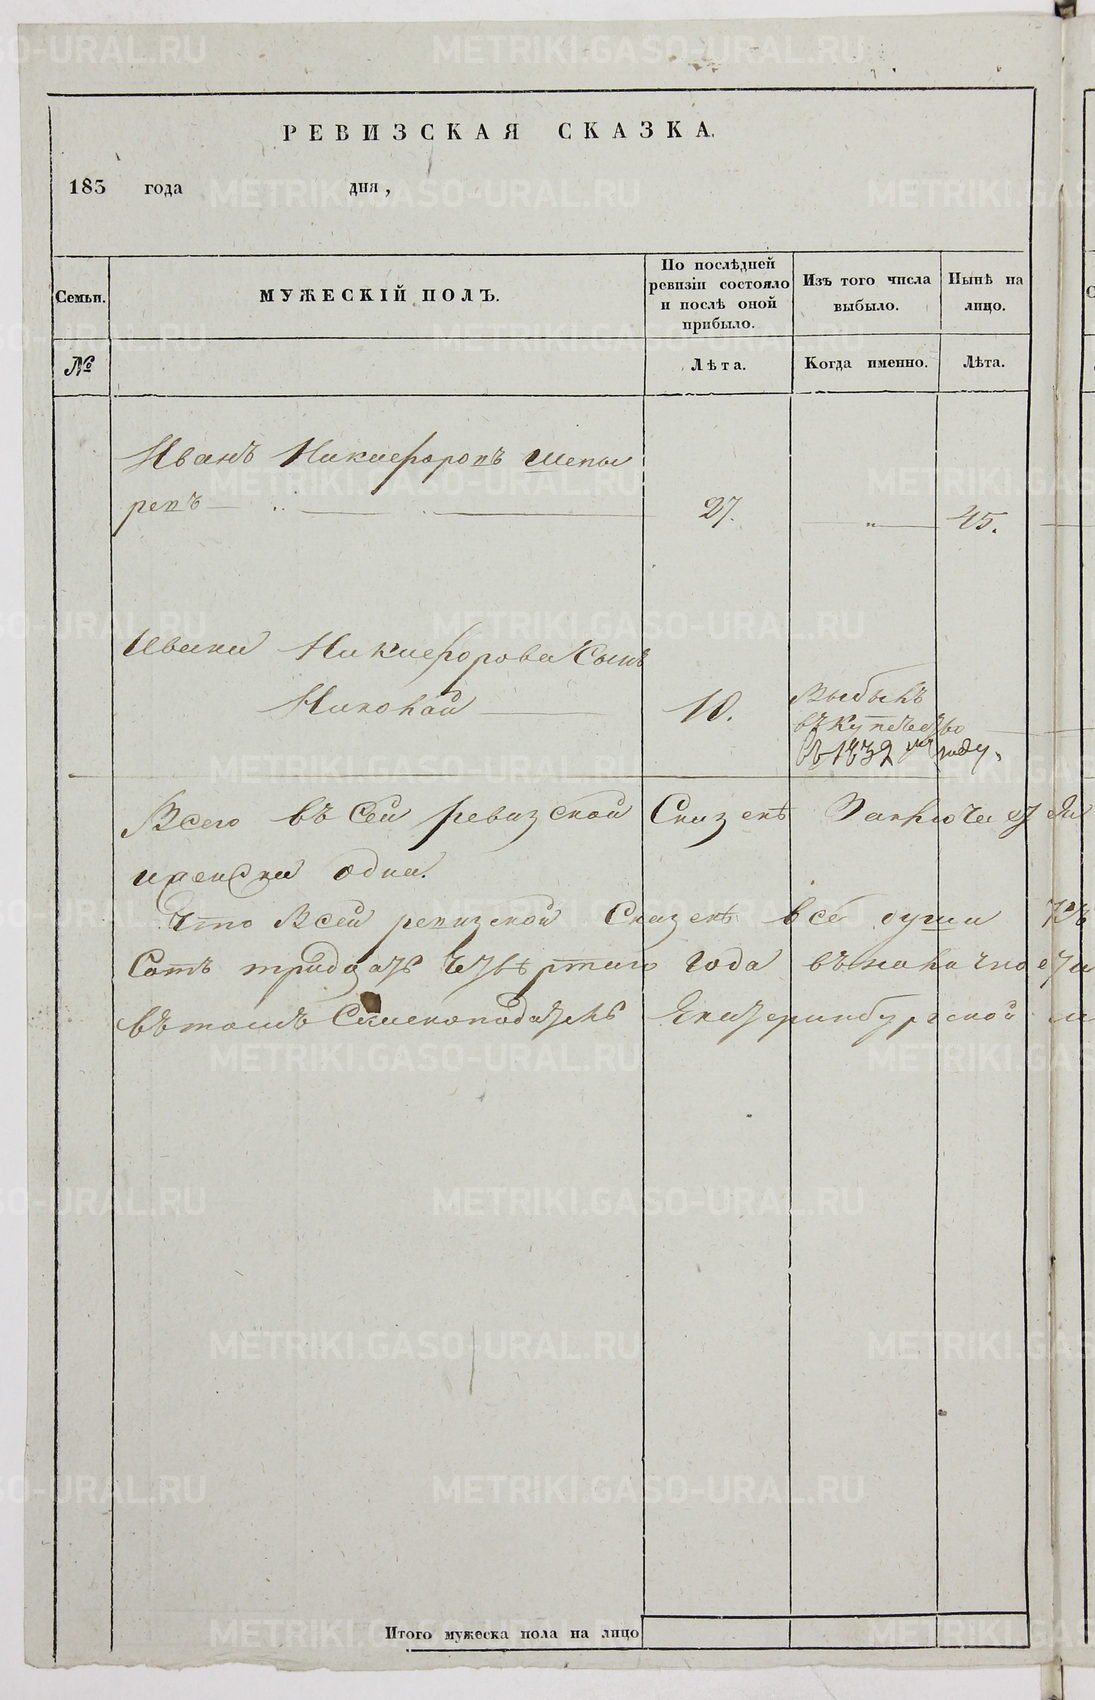 РЕВИЗСКАЯ СКАЗКА.
183 года дня,
Семьи. МУЖЕСКІЙ ПОЛЪ. По послѣдней ревизіи состояло и послѣ оной прибыло. Изъ того числа выбыло. Нынѣ на лицо.
№ Лѣта. Когда именно. Лѣта.
Иванъ Никифоровъ Шепы
ревъ 27. " 45.
Ивана Никифорова Сынъ
Николай 18. Выбылъ
въ купечество
въ 1832 году.
Всего въ сей ревизской Сказкѣ Заключа
одна.
Что Всей ревизской Сказкѣ всѣ души
Сотъ тридцать четвертаго года въ
въ томъ Екатеринбургской
Итого мужеска пола на лицо
METRIKI.GASO-URAL.RU